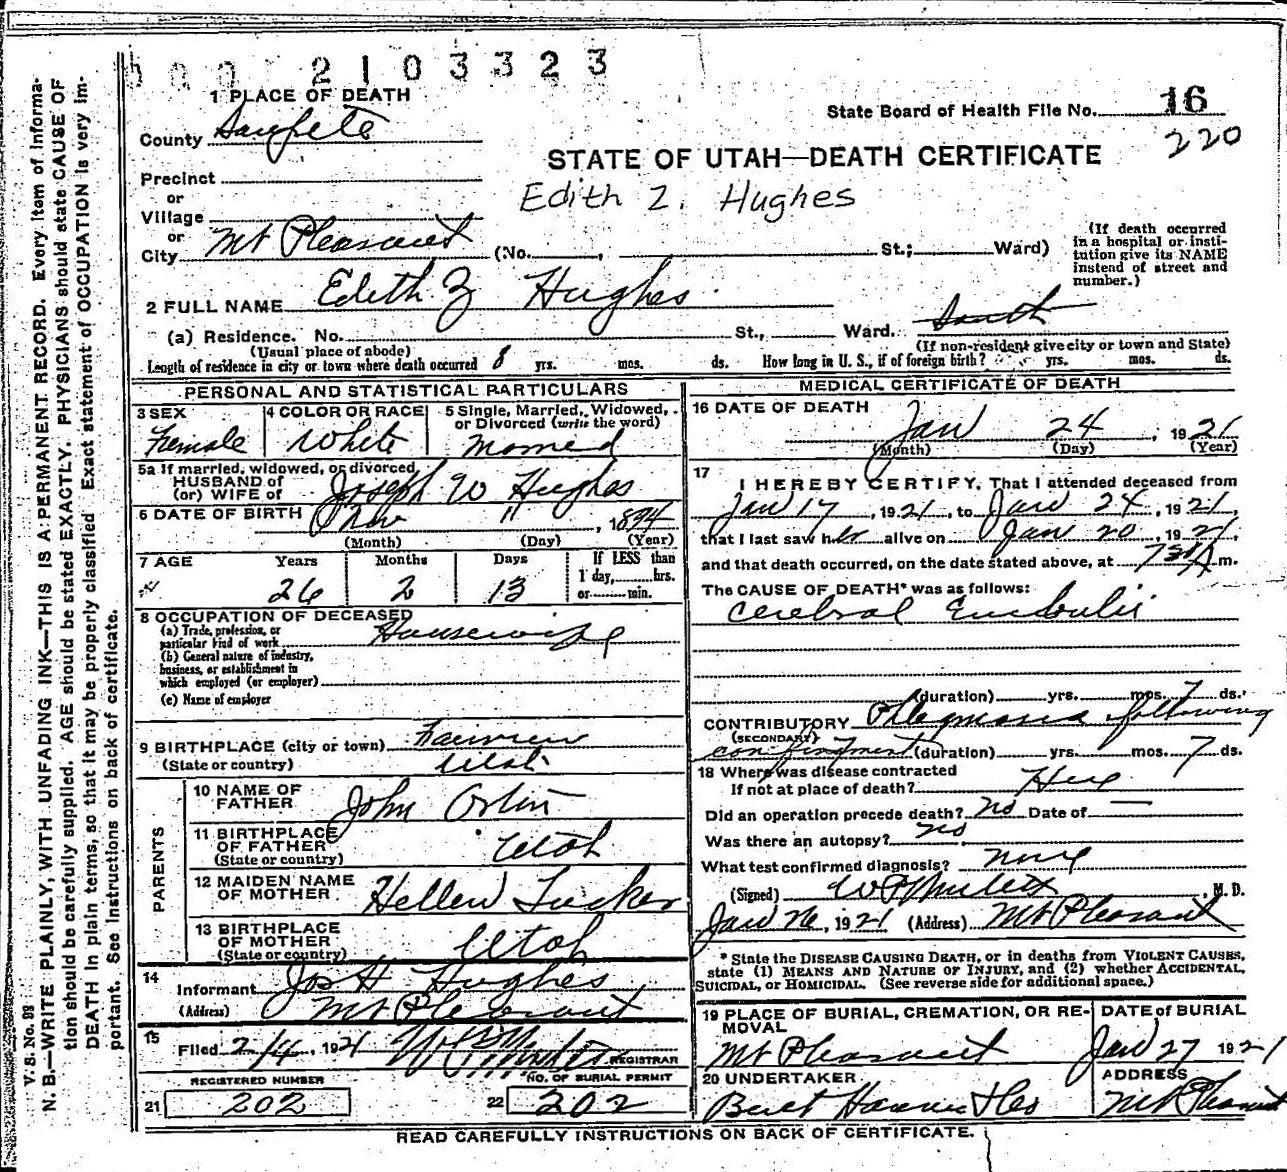 2103323
1 PLACE OF DEATH
State Board of Health File No. 16
220
County Sanpete
STATE OF UTAH—DEATH CERTIFICATE
Edith Z. Hughes
Precinct
or
Village
or
City Mt Pleasant (No. , St.; Ward)
(If death occurred in a hospital or institution give its NAME instead of street and number.)
2 FULL NAME Edith Z Hughes
(a) Residence. No. St., Ward. South
(Usual place of abode) (If non-resident give city or town and State)
Length of residence in city or town where death occurred 8 yrs. mos. ds. How long in U. S., if of foreign birth? yrs. mos. ds.
PERSONAL AND STATISTICAL PARTICULARS
3 SEX 4 COLOR OR RACE 5 Single, Married, Widowed, or Divorced (write the word)
Female White Married
5a If married, widowed, or divorced
HUSBAND of
(or) WIFE of Joseph W Hughes
6 DATE OF BIRTH Nov 11, 1894
(Month) (Day) (Year)
7 AGE Years Months Days If LESS than
1 day, hrs.
or min.
26 2 13
8 OCCUPATION OF DECEASED
(a) Trade, profession, or
particular kind of work Housewife
(b) General nature of industry,
business, or establishment in
which employed (or employer)
(c) Name of employer
9 BIRTHPLACE (city or town) Fairview
(State or country) Utah
PARENTS
10 NAME OF FATHER John
11 BIRTHPLACE OF FATHER
(State or country) Utah
12 MAIDEN NAME OF MOTHER Hellen Tucker
13 BIRTHPLACE OF MOTHER
(State or country) Utah
14
Informant Jos H Hughes
(Address) Mt Pleasant
15
Filed 2/4, 1921 REGISTRAR
REGISTERED NUMBER NO. OF BURIAL PERMIT
21 202 22 202
MEDICAL CERTIFICATE OF DEATH
16 DATE OF DEATH
Jan 24, 1921
(Month) (Day) (Year)
17
I HEREBY CERTIFY, That I attended deceased from
Jan 17, 1921, to Jan 24, 1921,
that I last saw her alive on Jan 20, 1921,
and that death occurred, on the date stated above, at 730A m.
The CAUSE OF DEATH* was as follows:
Cerebral
(duration) yrs. mos. 7 ds.
CONTRIBUTORY Phlegmasia following
(SECONDARY)
confinement (duration) yrs. mos. 7 ds.
18 Where was disease contracted
If not at place of death? Here
Did an operation precede death? No Date of —
Was there an autopsy? No
What test confirmed diagnosis? None
(Signed) , M. D.
Jan 26, 1921 (Address) Mt Pleasant
* State the DISEASE CAUSING DEATH, or in deaths from VIOLENT CAUSES,
state (1) MEANS AND NATURE OF INJURY, and (2) whether ACCIDENTAL,
SUICIDAL, or HOMICIDAL. (See reverse side for additional space.)
19 PLACE OF BURIAL, CREMATION, OR RE-
MOVAL DATE OF BURIAL
Mt Pleasant Jan 27 1921
20 UNDERTAKER ADDRESS
Mt Pleasant
READ CAREFULLY INSTRUCTIONS ON BACK OF CERTIFICATE.
V. S. No. 82
N. B.—WRITE PLAINLY, WITH UNFADING INK—THIS IS A PERMANENT RECORD. Every item of Informa-
tion should be carefully supplied. AGE should be stated EXACTLY. PHYSICIANS should state CAUSE OF
DEATH in plain terms, so that it may be properly classified. Exact statement of OCCUPATION is very im-
portant. See Instructions on back of certificate.